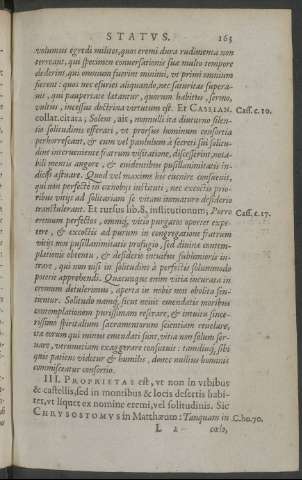 STATVS. 163
volumus egredi milites, quos eremi dura rudimenta non
terreant, qui specimen conversationis suæ multo tempore
dederint, qui omnium fuerint minimi, ut primi omnium
fierent: quos nec esuries aliquando, nec saturitas supera-
uit, qui paupertate lætantur, quorum habitus, sermo,
vultus, incessus doctrina virtutum est. Et CASSIAN. Cass. c. 10.
collat. citata; Solent, ait, nonnulli ita diuturno silen-
tio solitudinis efferari, ut prorsus hominum consortia
perhorrescant, & cum vel paululum à secreti sui solitu-
dine interveniente fratrum visitatione, discesserint, nota-
bili mentis angore, & evidentibus pusillanimitatis in-
dicijs æstuare. Quod vel maxime his evenire consuevit,
qui non perfectè in cœnobijs instituti, nec excoctis prio-
ribus vitijs ad solitariam se vitam immaturo desiderio
transtulerunt. Et rursus lib. 8. institutionum, Porro Cass. c. 17.
eremum perfectos, omnique vitio purgatos oportet expe-
tere, & excoctis ad purum in congregatione fratrum
vitijs non pusillanimitatis profugio, sed divinæ contem-
plationis obtentu, & desiderio intuitus sublimioris in-
trare, qui non nisi in solitudine à perfectis solummodo
poterit apprehendi. Quæcunque enim vitia incurata in
eremum detulerimus, operta in nobis non abolita sen-
tientur. Solitudo namque sicut novit emendatis moribus
contemplationem purissimam reserare, & intuitu since-
rissimo spiritalium sacramentorum scientiam revelare,
ita eorum qui minus emendati sunt, vitia non solum ser-
vare, verumetiam exaggerare consuevit: tamdiuque sibi
quis patiens videtur & humilis, donec nullius hominis
commisceatur consortio.
III. PROPRIETAS est, ut non in urbibus
& castellis, sed in montibus & locis desertis habi-
tet, ut liquet ex nomine eremi, vel solitudinis. Sic
CHRYSOSTOMVS in Matthæum: Tanquam in C. ho. 70.
L 2 cælo,